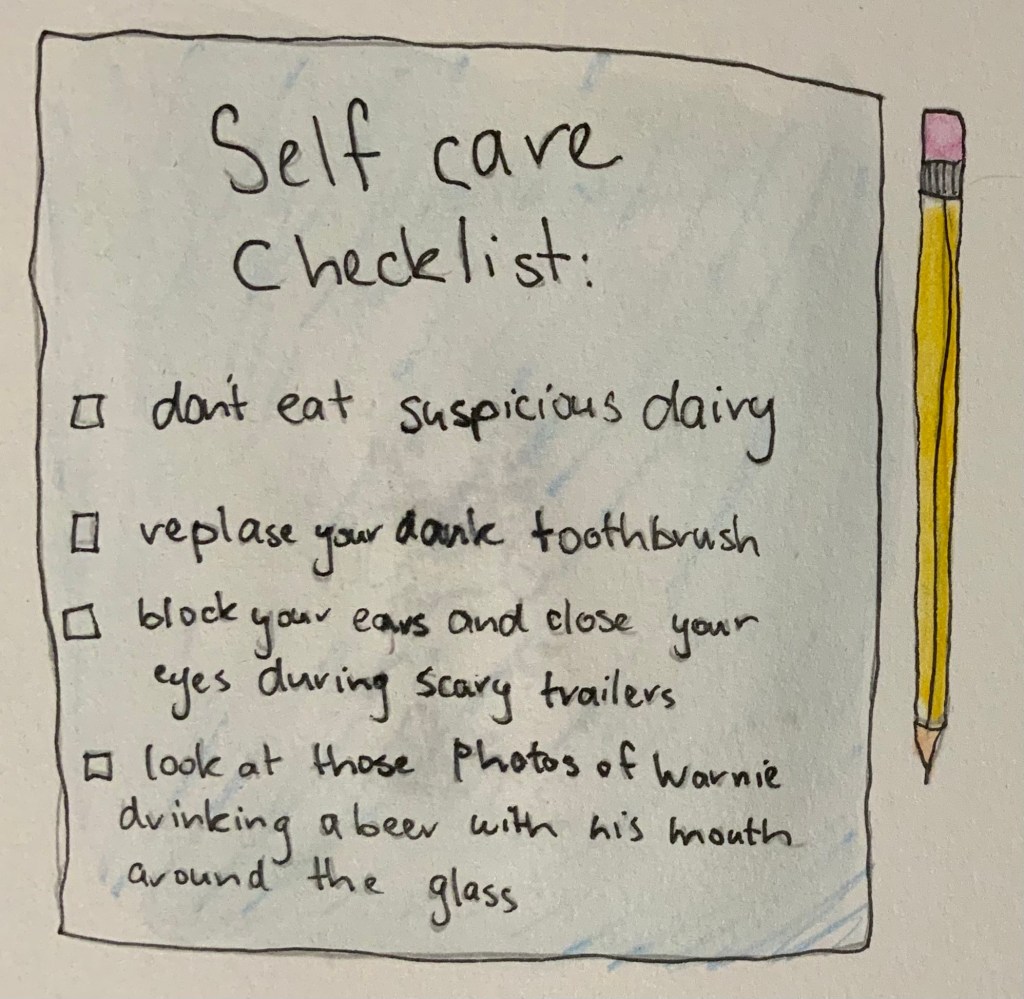 Self care
Checklist:
don't eat suspicious dairy
replase your dank toothbrush
block your ears and close your
eyes during scary trailers
look at those photos of Warnie
drinking a beer with his mouth
around the glass